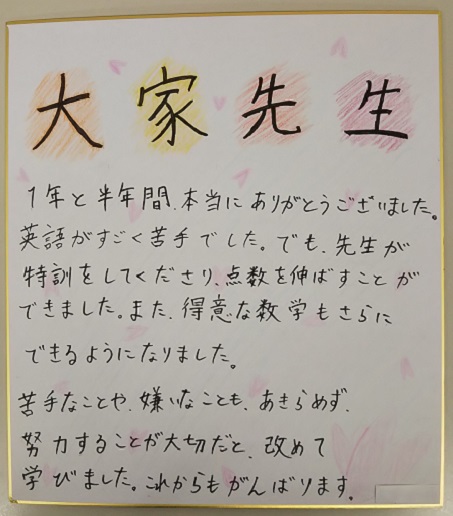 大家先生
1年と半年間、本当にありがとうございました。
英語がすごく苦手でした。でも、先生が
特訓をしてくださり、点数を伸ばすことが
できました。また、得意な数学もさらに
できるようになりました。
苦手なことや、嫌いなことも、あきらめず、
努力することが大切だと、改めて
学びました。これからもがんばります。